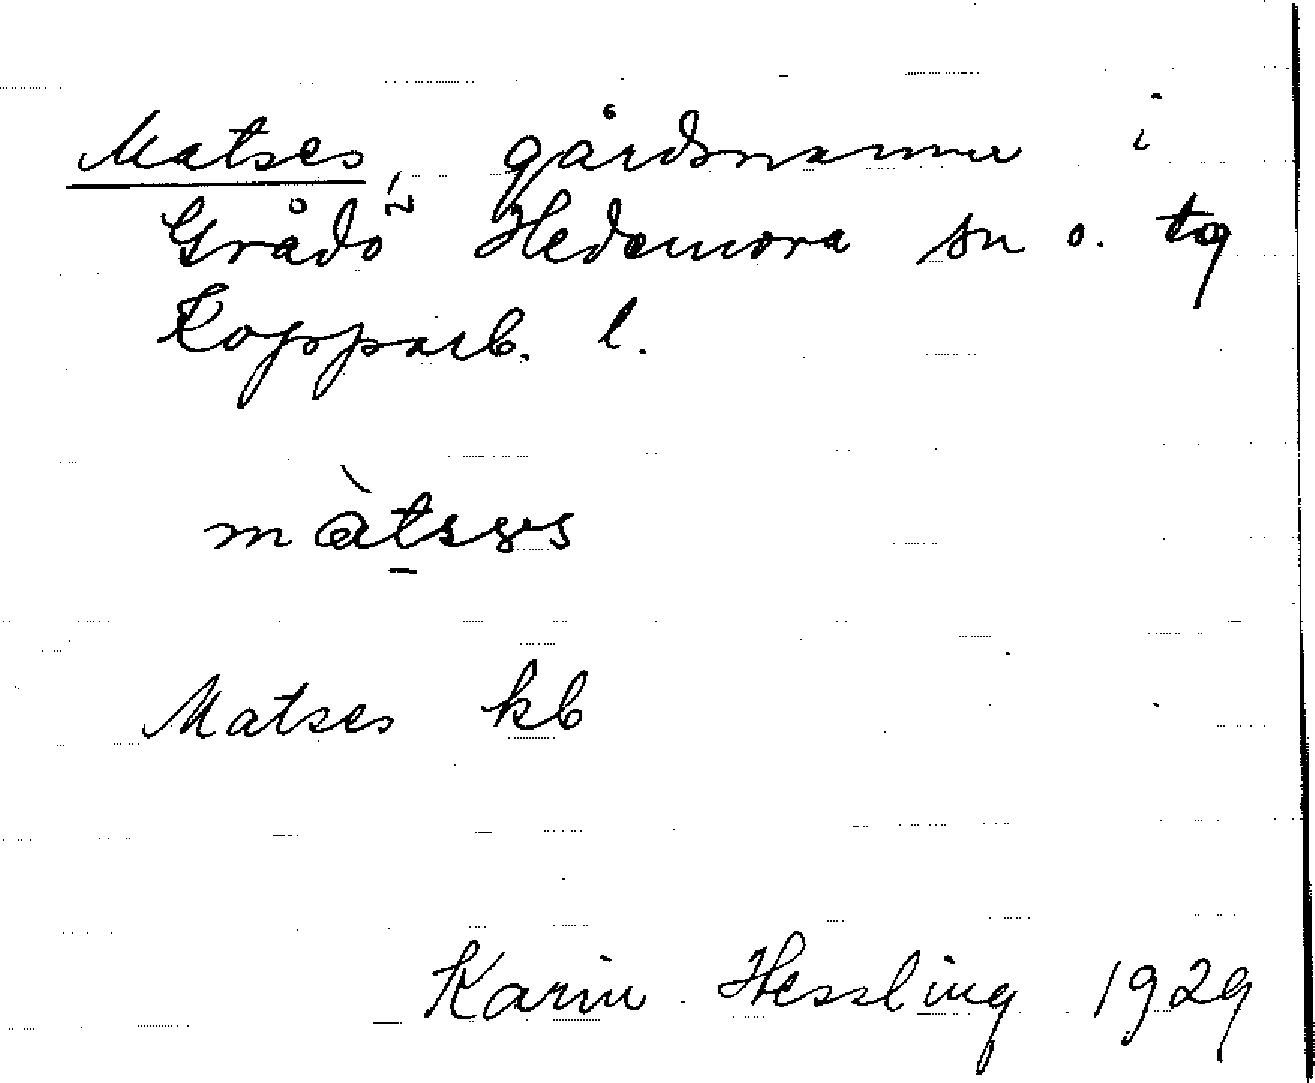 Matses, gårdsnamn i
Grådö Hedemora sn o. tg
Kopparb. l.
màtsəs
Matses kb
Karin Hessling 1929